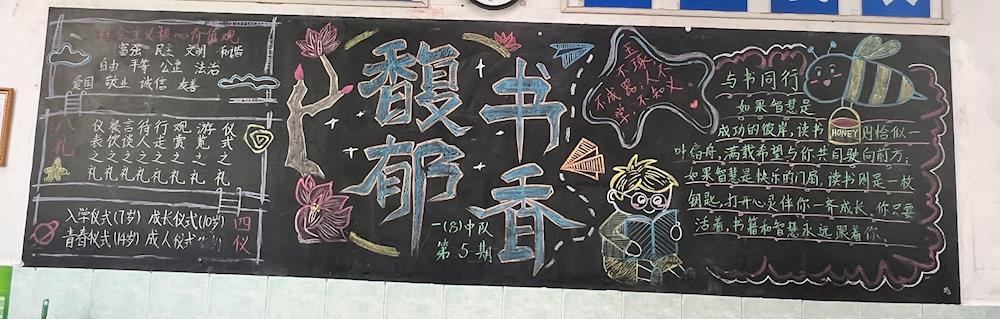 社会主义核心价值观
富强 民主 文明 和谐
自由 平等 公正 法治
爱国 敬业 诚信 友善
八礼
仪表之礼
餐饮之礼
言谈之礼
待人之礼
行走之礼
观赏之礼
游览之礼
仪式之礼
入学仪式(7岁) 成长仪式(10岁)
青春仪式(14岁) 成人仪式
四仪
馥郁书香
一(8)中队
第5期
玉不琢
不成器,人不
学 不知义
与书同行
如果智慧是
成功的彼岸,读书则恰似一
叶扁舟,满载希望与你共同驶向前方;
如果智慧是快乐的门扇,读书则是一枚
钥匙,打开心灵伴你一齐成长.你只要
活着,书籍和智慧永远跟着你.
HONEY